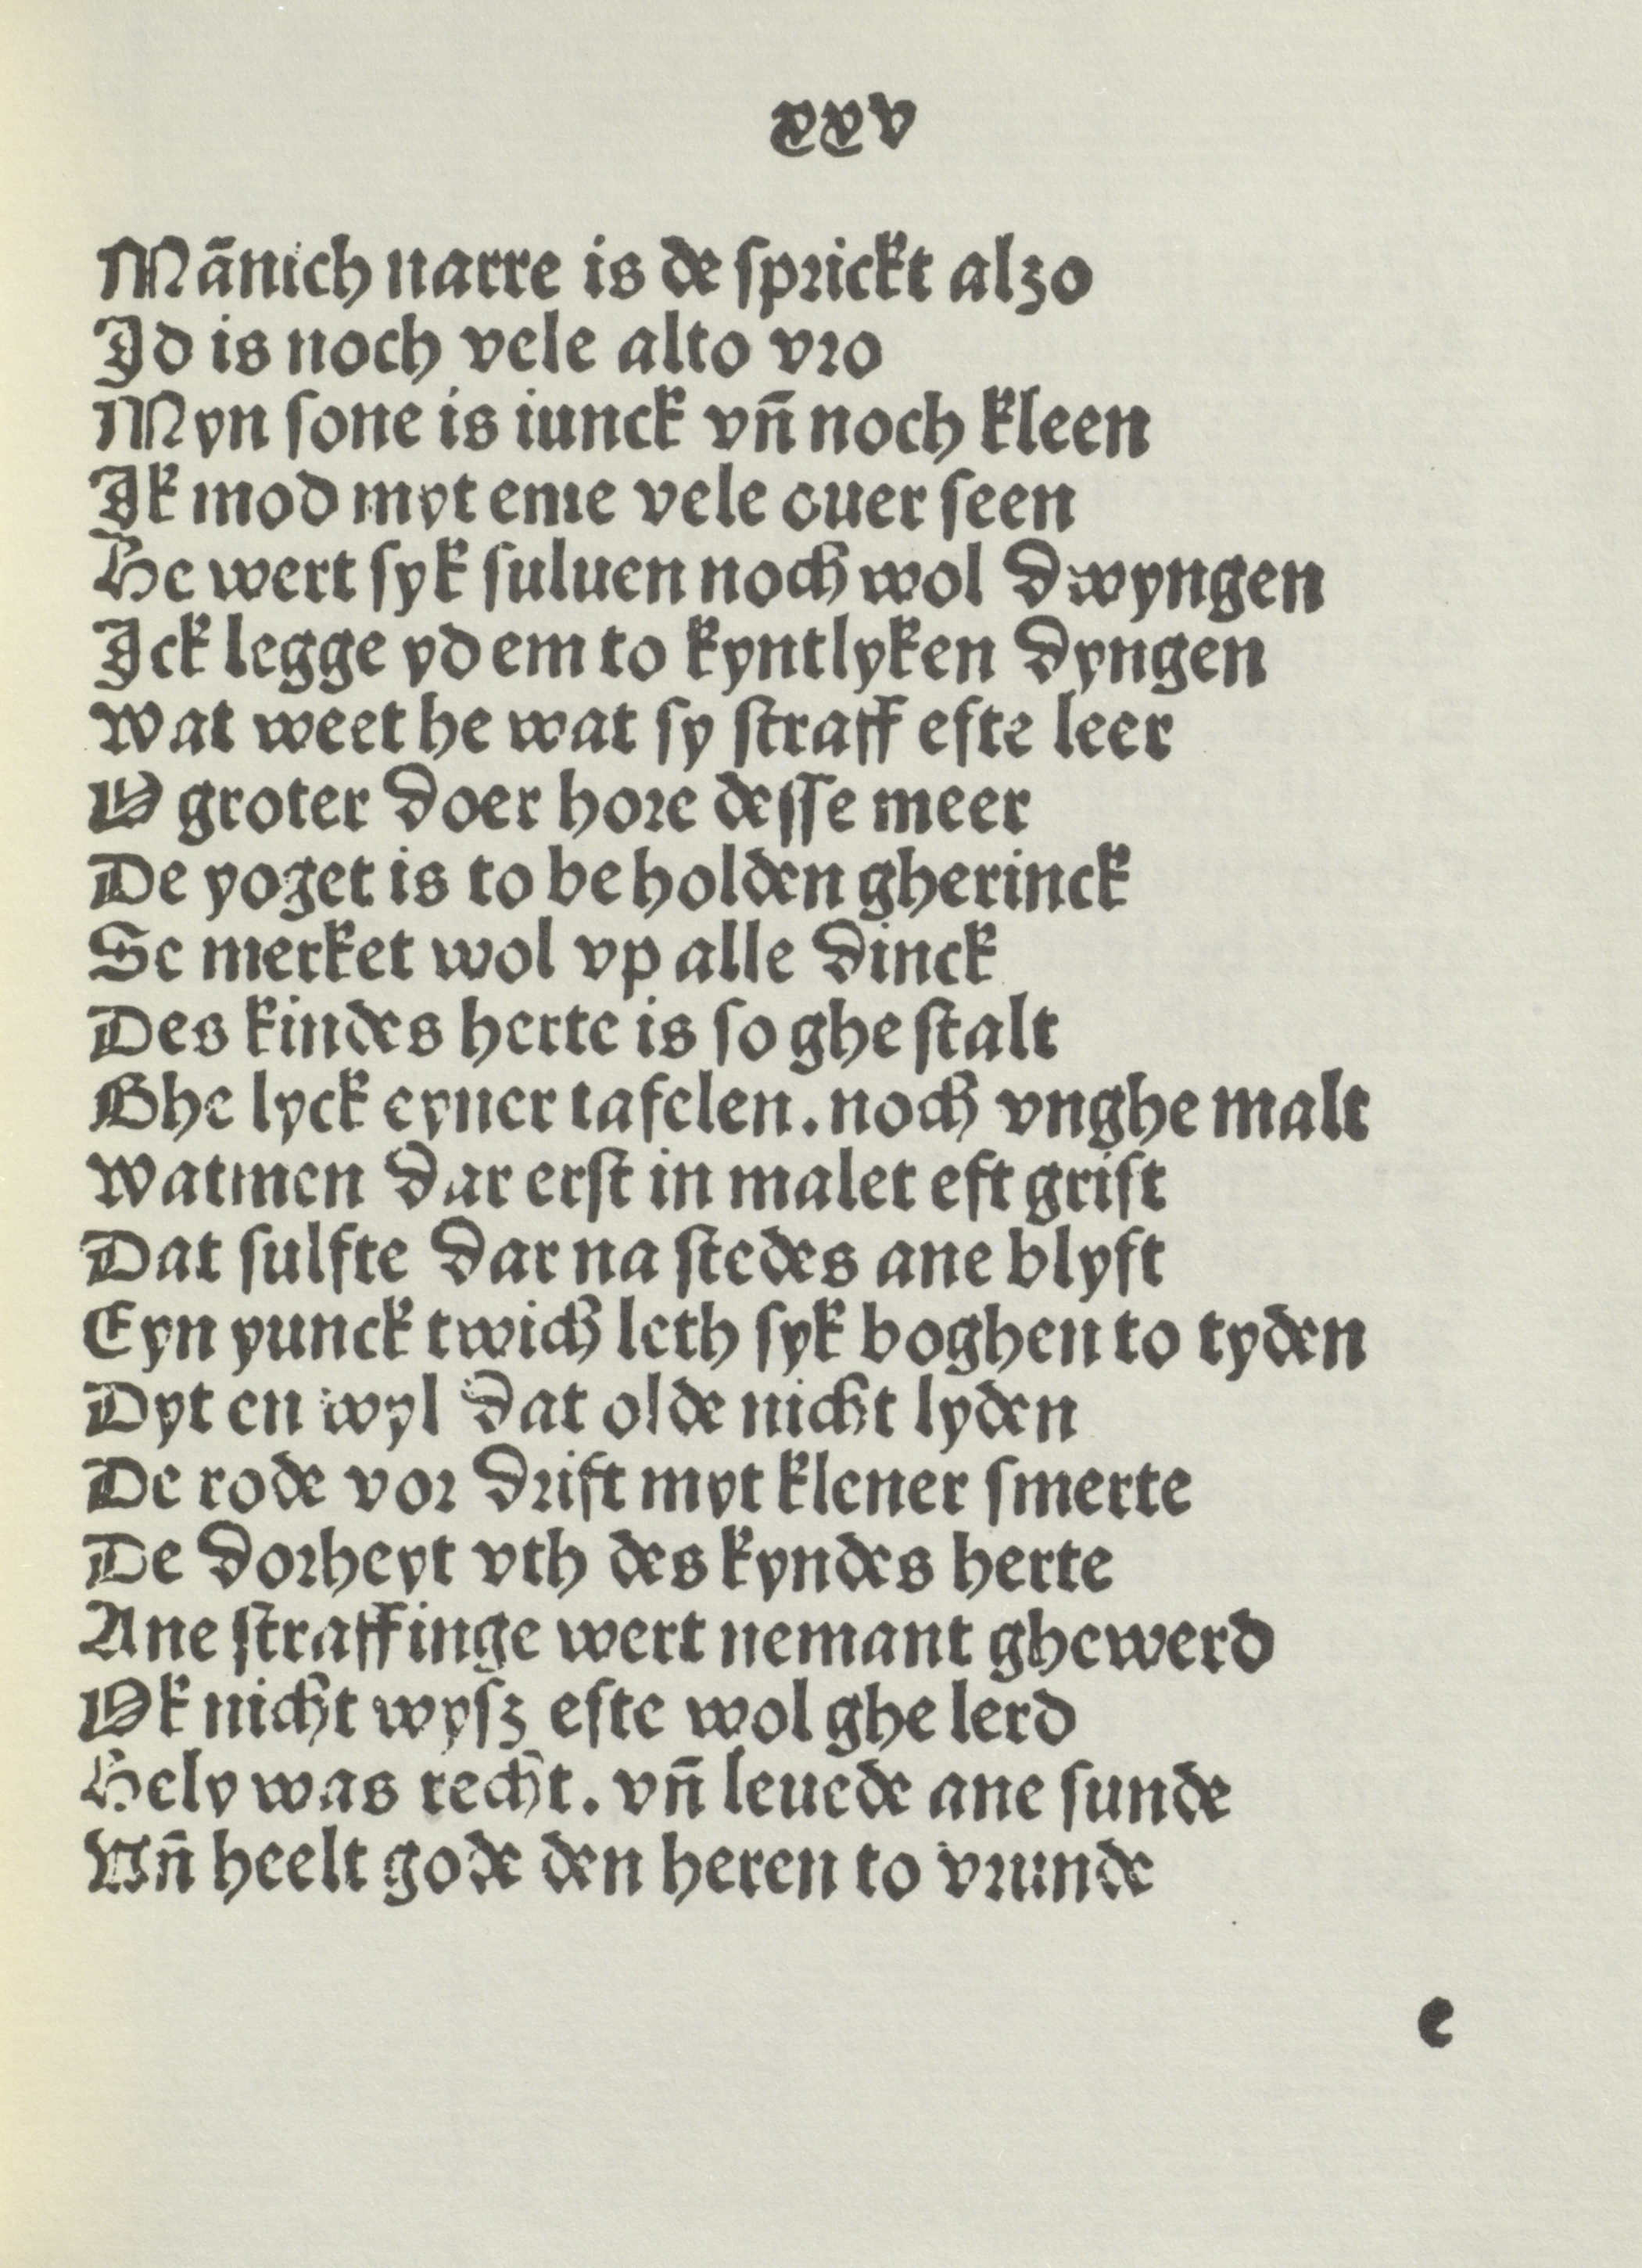 xxv
Mānich narre is de ſprickt alzo
Id is noch vele alto vro
Myn ſone is iunck vn̄ noch kleen
Ik mod myt eme vele ouer ſeen
He wert ſyk ſuluen noch wol dwyngen
Ick legge yd em to kyntlyken dyngen
Wat weet he wat ſy ſtraff efte leer
O groter doer hore deſſe meer
De yoget is to be holden gherinck
Se merket wol vp alle dinck
Des kindes herte is ſo ghe ſtalt
Ghe lyck eyner tafelen. noch vnghe malt
Watmen dar erſt in malet eft grift
Dat ſulfte dar na ſtedes ane blyft
Eyn yunck twich leth ſyk boghen to tyden
Dyt en wyl dat olde nicht lyden
De rode vor drift myt klener ſmerte
De dorheyt vth des kyndes herte
Ane ſtraffinge wert nemant ghewerd
Ok nicht wyſz efte wol ghe lerd
Hely was recht. vn̄ leuede ane ſunde
Vn̄ heelt gode den heren to vrunde
e